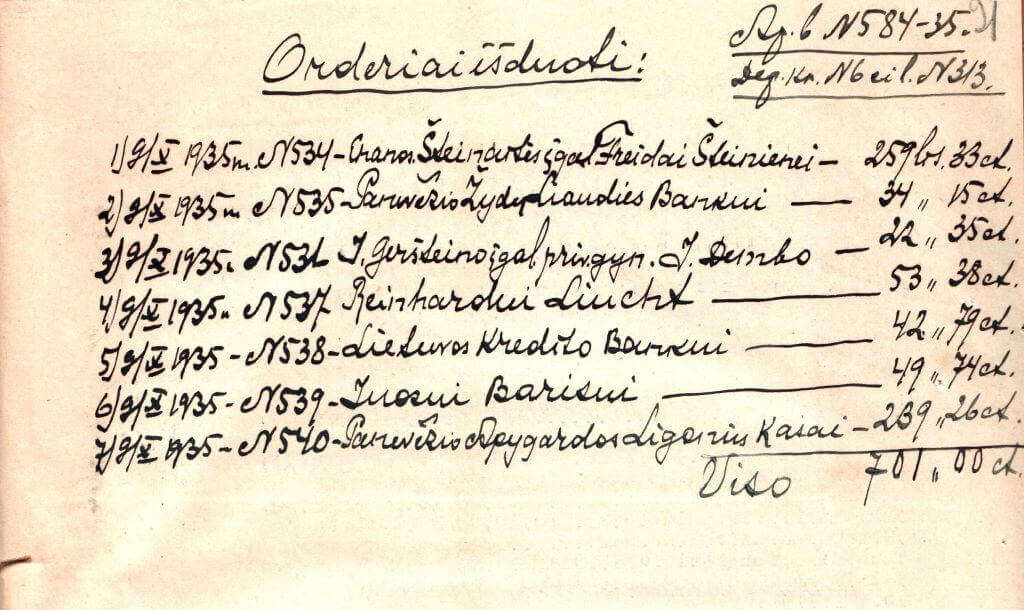 Ap. b N584-35.
Orderiai išduoti:
Dep. kr. N6 eil. N313.
1) 9/X 1935 m. N534 - Chanos Šteinartės įgal. Freidai Šteinienei - 259 lts. 33 ct.
2) 9/X 1935 m N535 - Panevėžio Žydų Liaudies Bankui — 34 „ 15 ct.
3) 9/X 1935. N536 J. Geršteino įgal. priv. gyn. J. Dembo — 22 „ 35 ct.
4) 9/X 1935 „ N537 Reinhardui Liucht — 53 „ 38 ct.
5) 9/X 1935 - N538 - Lietuvos Kredito Bankui — 42 „ 79 ct.
6) 9/X 1935 - N539 - Inosui Barisui — 49 „ 74 ct.
7) 9/X 1935 - N540 - Panevėžio Apygardos Ligonių Kasai - 239 „ 26 ct.
Viso 701 „ 00 ct.